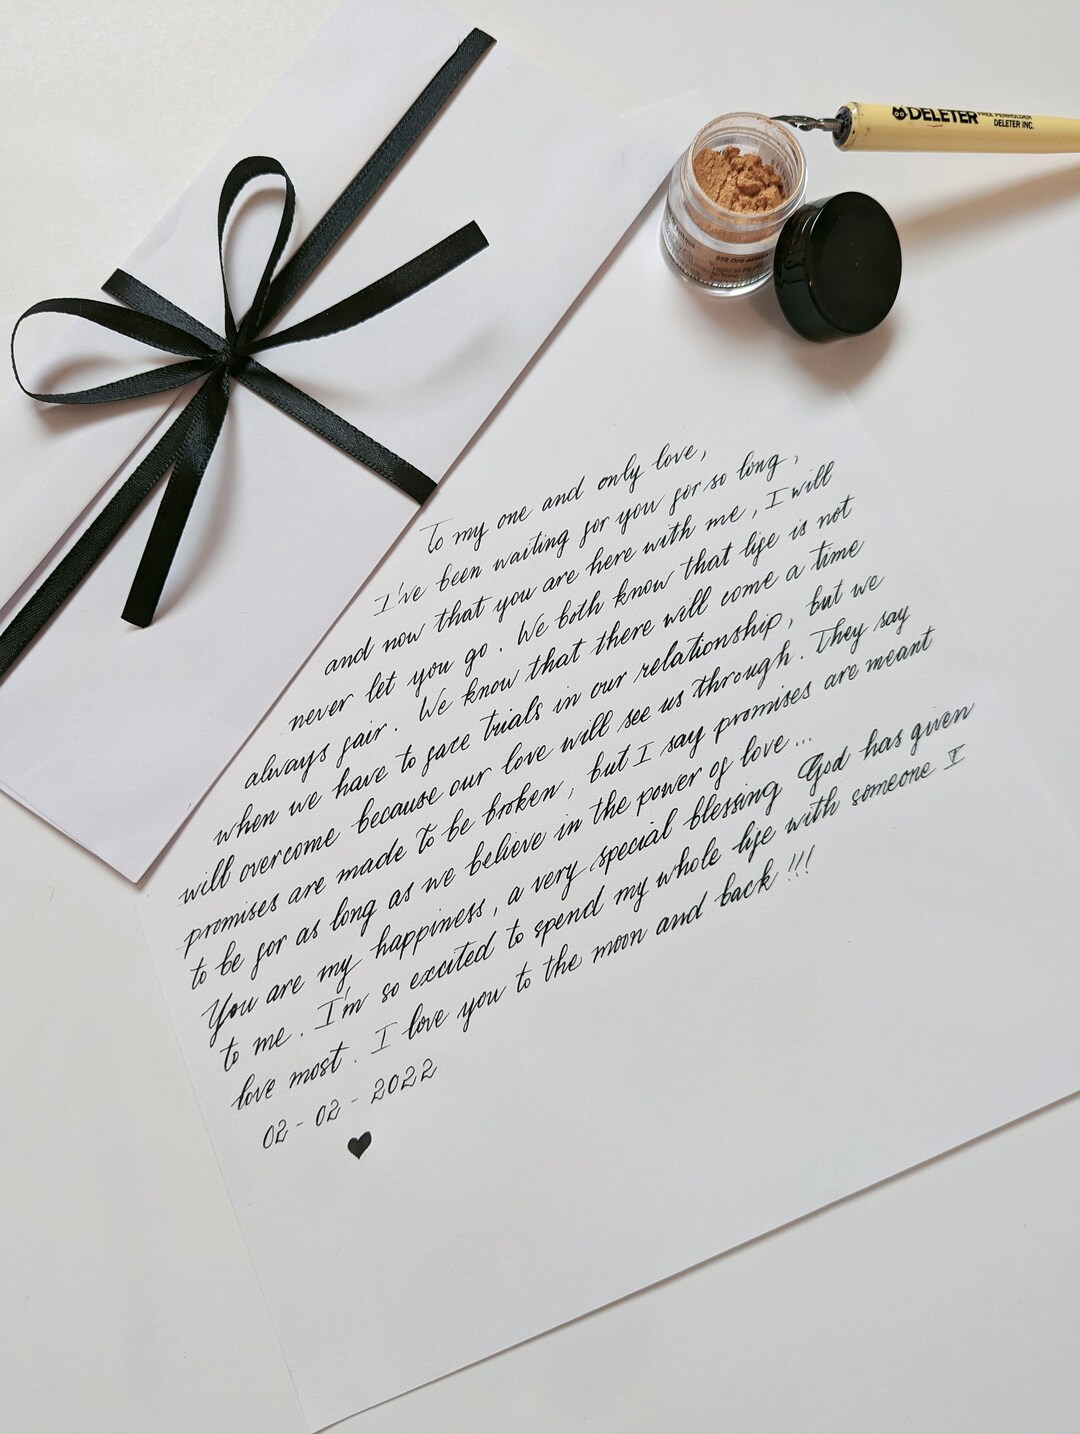 DELETER FREE PENHOLDER
DELETER INC.
To my one and only love,
I've been waiting for you for so long,
and now that you are here with me, I will
never let you go. We both know that life is not
always fair. We know that there will come a time
when we have to face trials in our relationship, but we
will overcome because our love will see us through. They say
promises are made to be broken, but I say promises are meant
to be for as long as we believe in the power of love...
You are my happiness, a very special blessing God has given
to me. I'm so excited to spend my whole life with someone I
love most. I love you to the moon and back!!!
02-02-2022